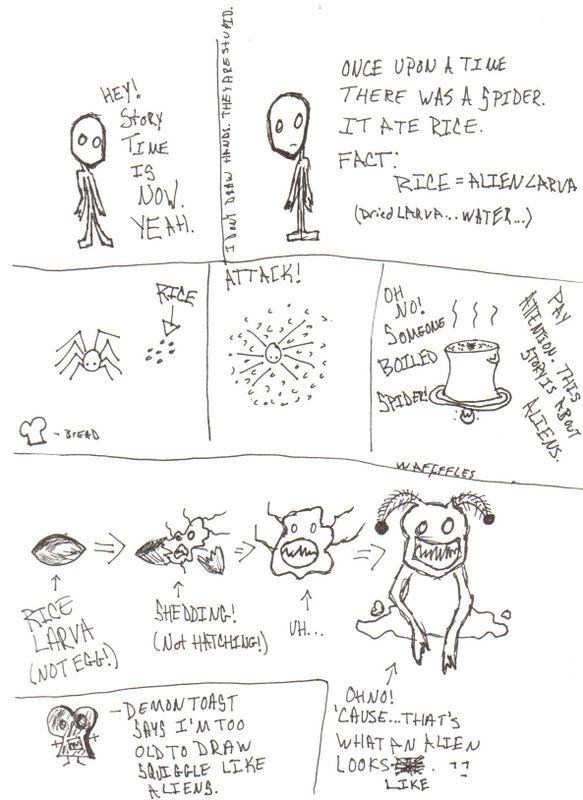 HEY!
STORY
TIME
IS
NOW.
YEAH.
I DON'T DRAW HANDS. THEY ARE STUPID.
ONCE UPON A TIME
THERE WAS A SPIDER.
IT ATE RICE.
FACT:
RICE = ALIEN LARVA
(Dried LARVA...WATER...)
RICE
- BREAD
ATTACK!
OH
NO!
SOMEONE
BOILED
SPIDER!
PAY
ATTENTION. THIS
STORY IS ABOUT
ALIENS.
WAFFFFLES
RICE
LARVA
(NOT EGG!)
SHEDDING!
(Not HATCHING!)
UH...
OH NO!
'CAUSE...THAT'S
WHAT AN ALIEN
LOOKS .
LIKE
- DEMON TOAST
SAYS I'M TOO
OLD TO DRAW
SQUIGGLE LIKE
ALIENS.